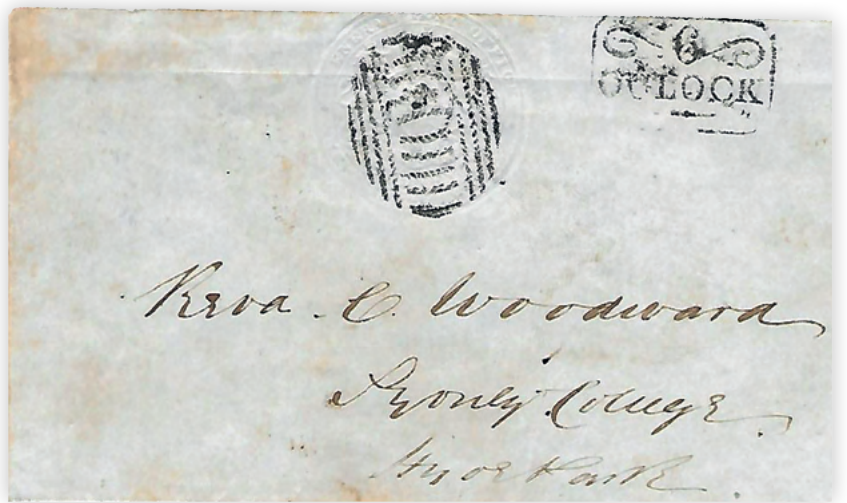 6
O'CLOCK
Revd. C. Woodward
Sydney College
Hyde Park